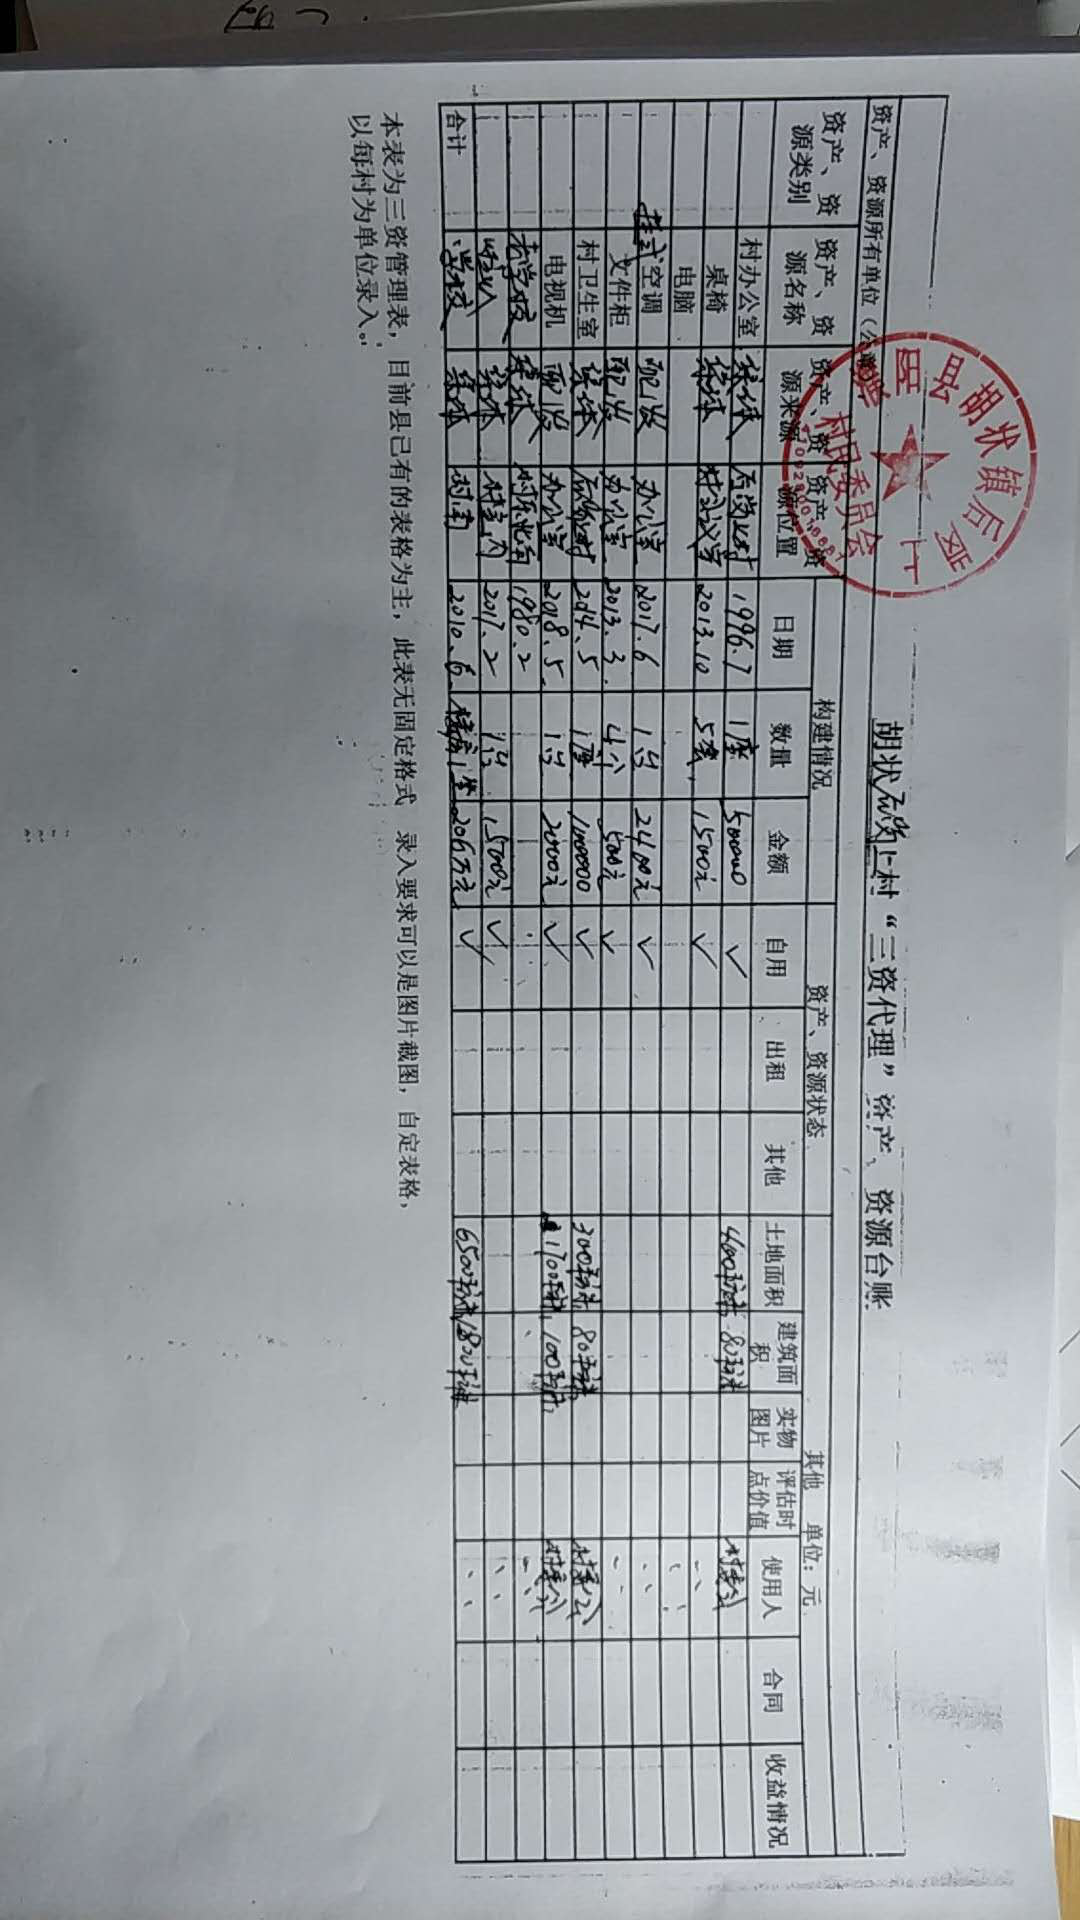 胡状后岗上村“三资代理”资产、资源台账
资产、资源所有单位（公章） 单位：元
县胡状镇后 上
村民委员会
资产、资源类别 资产、资源名称 资产、资源来源 资产、资源位置 构建情况 资产、资源状态 其他
日期 数量 金额 自用 出租 其他 土地面积 建筑面积 实物图片 评估时点价值 使用人 合同 收益情况
村办公室 集体 后岗上村 1996.7 1座 50000 ✓ 400平方米 80平方米 村委会
桌椅 集体 村会议室 2013.10 5套 1500元 ✓ 〃
电脑 〃
挂式空调 配发 办公室 2017.6 1台 2400元 ✓ 〃
文件柜 配发 办公室 2013.3 4个 500元 ✓ 〃
村卫生室 集体 后岗上村 2014.5 1座 100000 ✓ 300平方米 80平方米 村委会
电视机 配发 办公室 2018.5 1台 2000元 ✓ 1700平方米 100平方米 村委会
老学校 集体 村东北角 1980.2 〃
集体 村室内 2017.2 1台 1500元 ✓ 〃
合计 学校 集体 村南 2010.6 楼房1坐 206万元 ✓ 6500平方米 1820平方米 〃
本表为三资管理表，目前县已有的表格为主，此表无固定格式 录入要求可以是图片截图，自定表格，
以每村为单位录入。